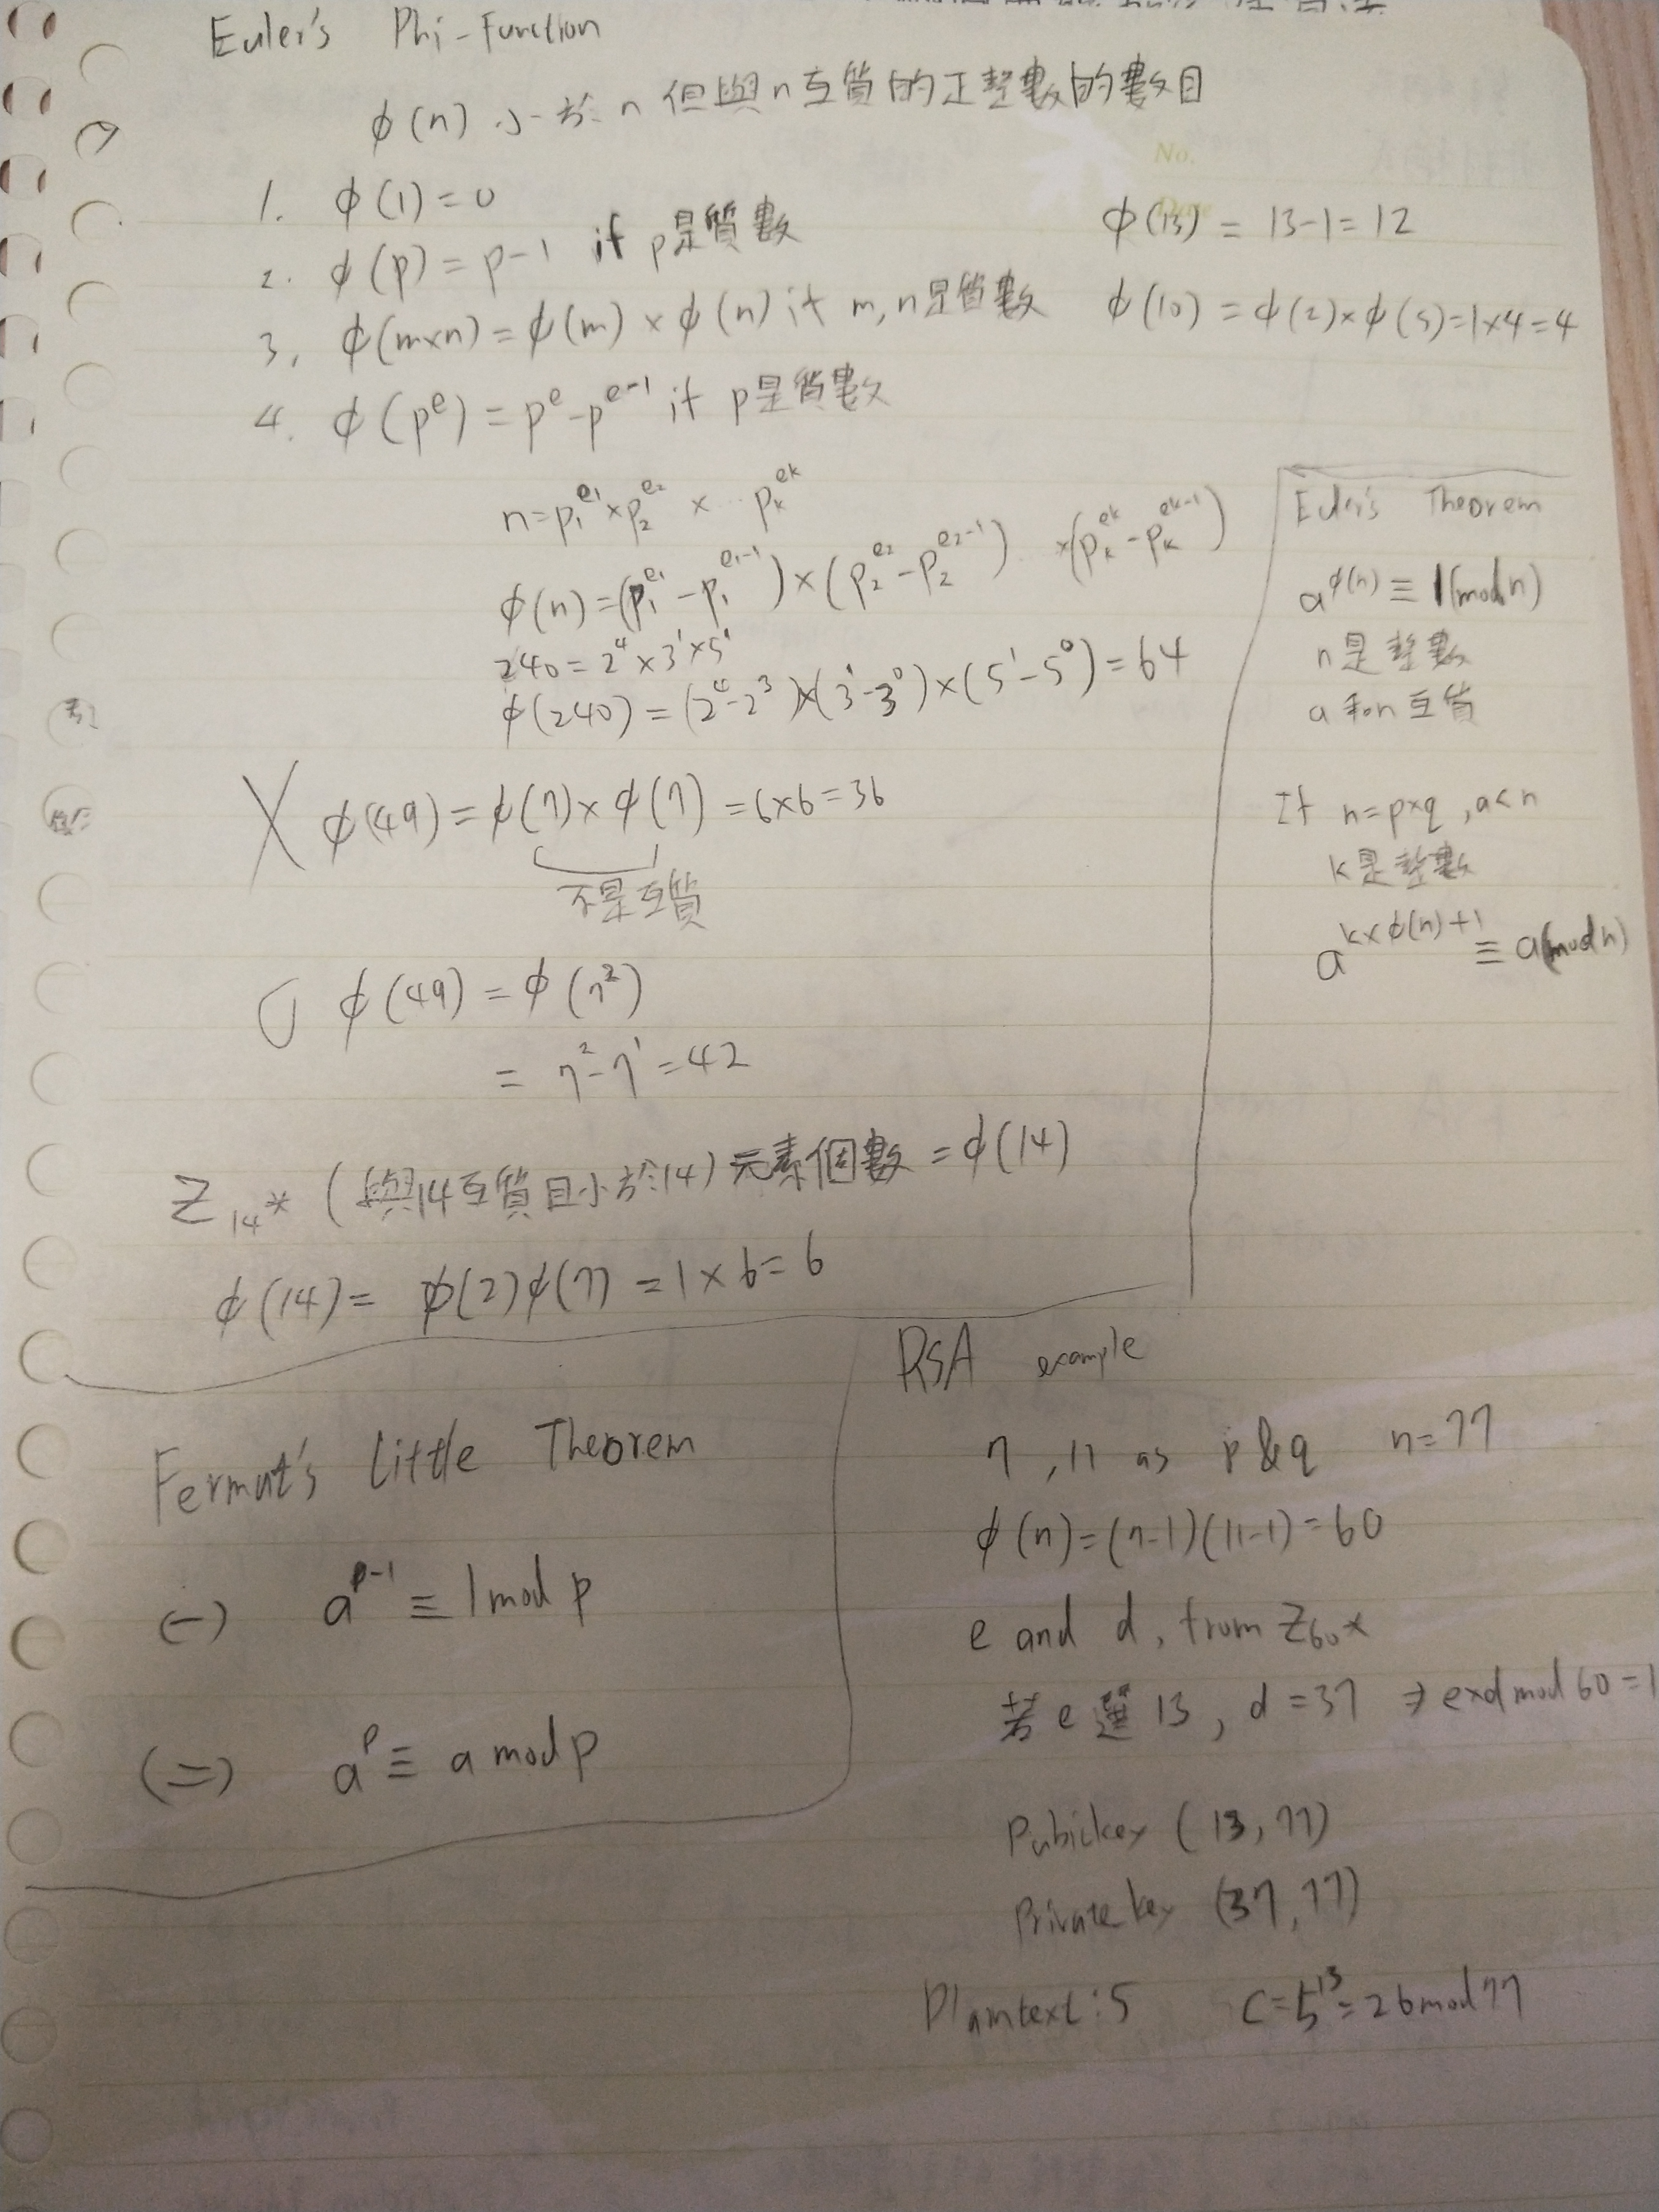 Euler's Phi-Function
φ(n) 小於 n 但與n互質的正整數的數目
No.
Date
1. φ(1)=0
φ(13) = 13-1=12
2. φ(p)=p-1 if p是質數
3. φ(m×n)=φ(m)×φ(n) if m,n是質數
φ(10)=φ(2)×φ(5)=1×4=4
4. φ(p^e)=p^e-p^{e-1} if p是質數
n=p_1^{e_1}×p_2^{e_2} × ... p_k^{e_k}
φ(n)=(p_1^{e_1}-p_1^{e_1-1})×(p_2^{e_2}-p_2^{e_2-1}) .. ×(p_k^{e_k}-p_k^{e_k-1})
240=2^4×3^1×5^1
φ(240)=(2^4-2^3)×(3^1-3^0)×(5^1-5^0)=64
X φ(49)=φ(7)×φ(7)=6×6=36
不是互質
O φ(49)=φ(7^2)
= 7^2-7^1=42
Z_14* (與14互質且小於14) 元素個數=φ(14)
φ(14)= φ(2)φ(7)=1×6=6
Euler's Theorem
a^{φ(n)}≡1(mod n)
n是整數
a和n互質
If n=p×q, a<n
k是整數
a^{k×φ(n)+1}≡a(mod n)
Fermat's Little Theorem
(一) a^{p-1}≡1 mod p
(二) a^p≡a mod p
RSA example
7, 11 as p&q n=77
φ(n)=(7-1)(11-1)=60
e and d, from Z_60*
若e選13, d=37 → e×d mod 60=1
Pubickey (13,77)
Private key (37,77)
Plaintext:5 C=5^13=26 mod 77